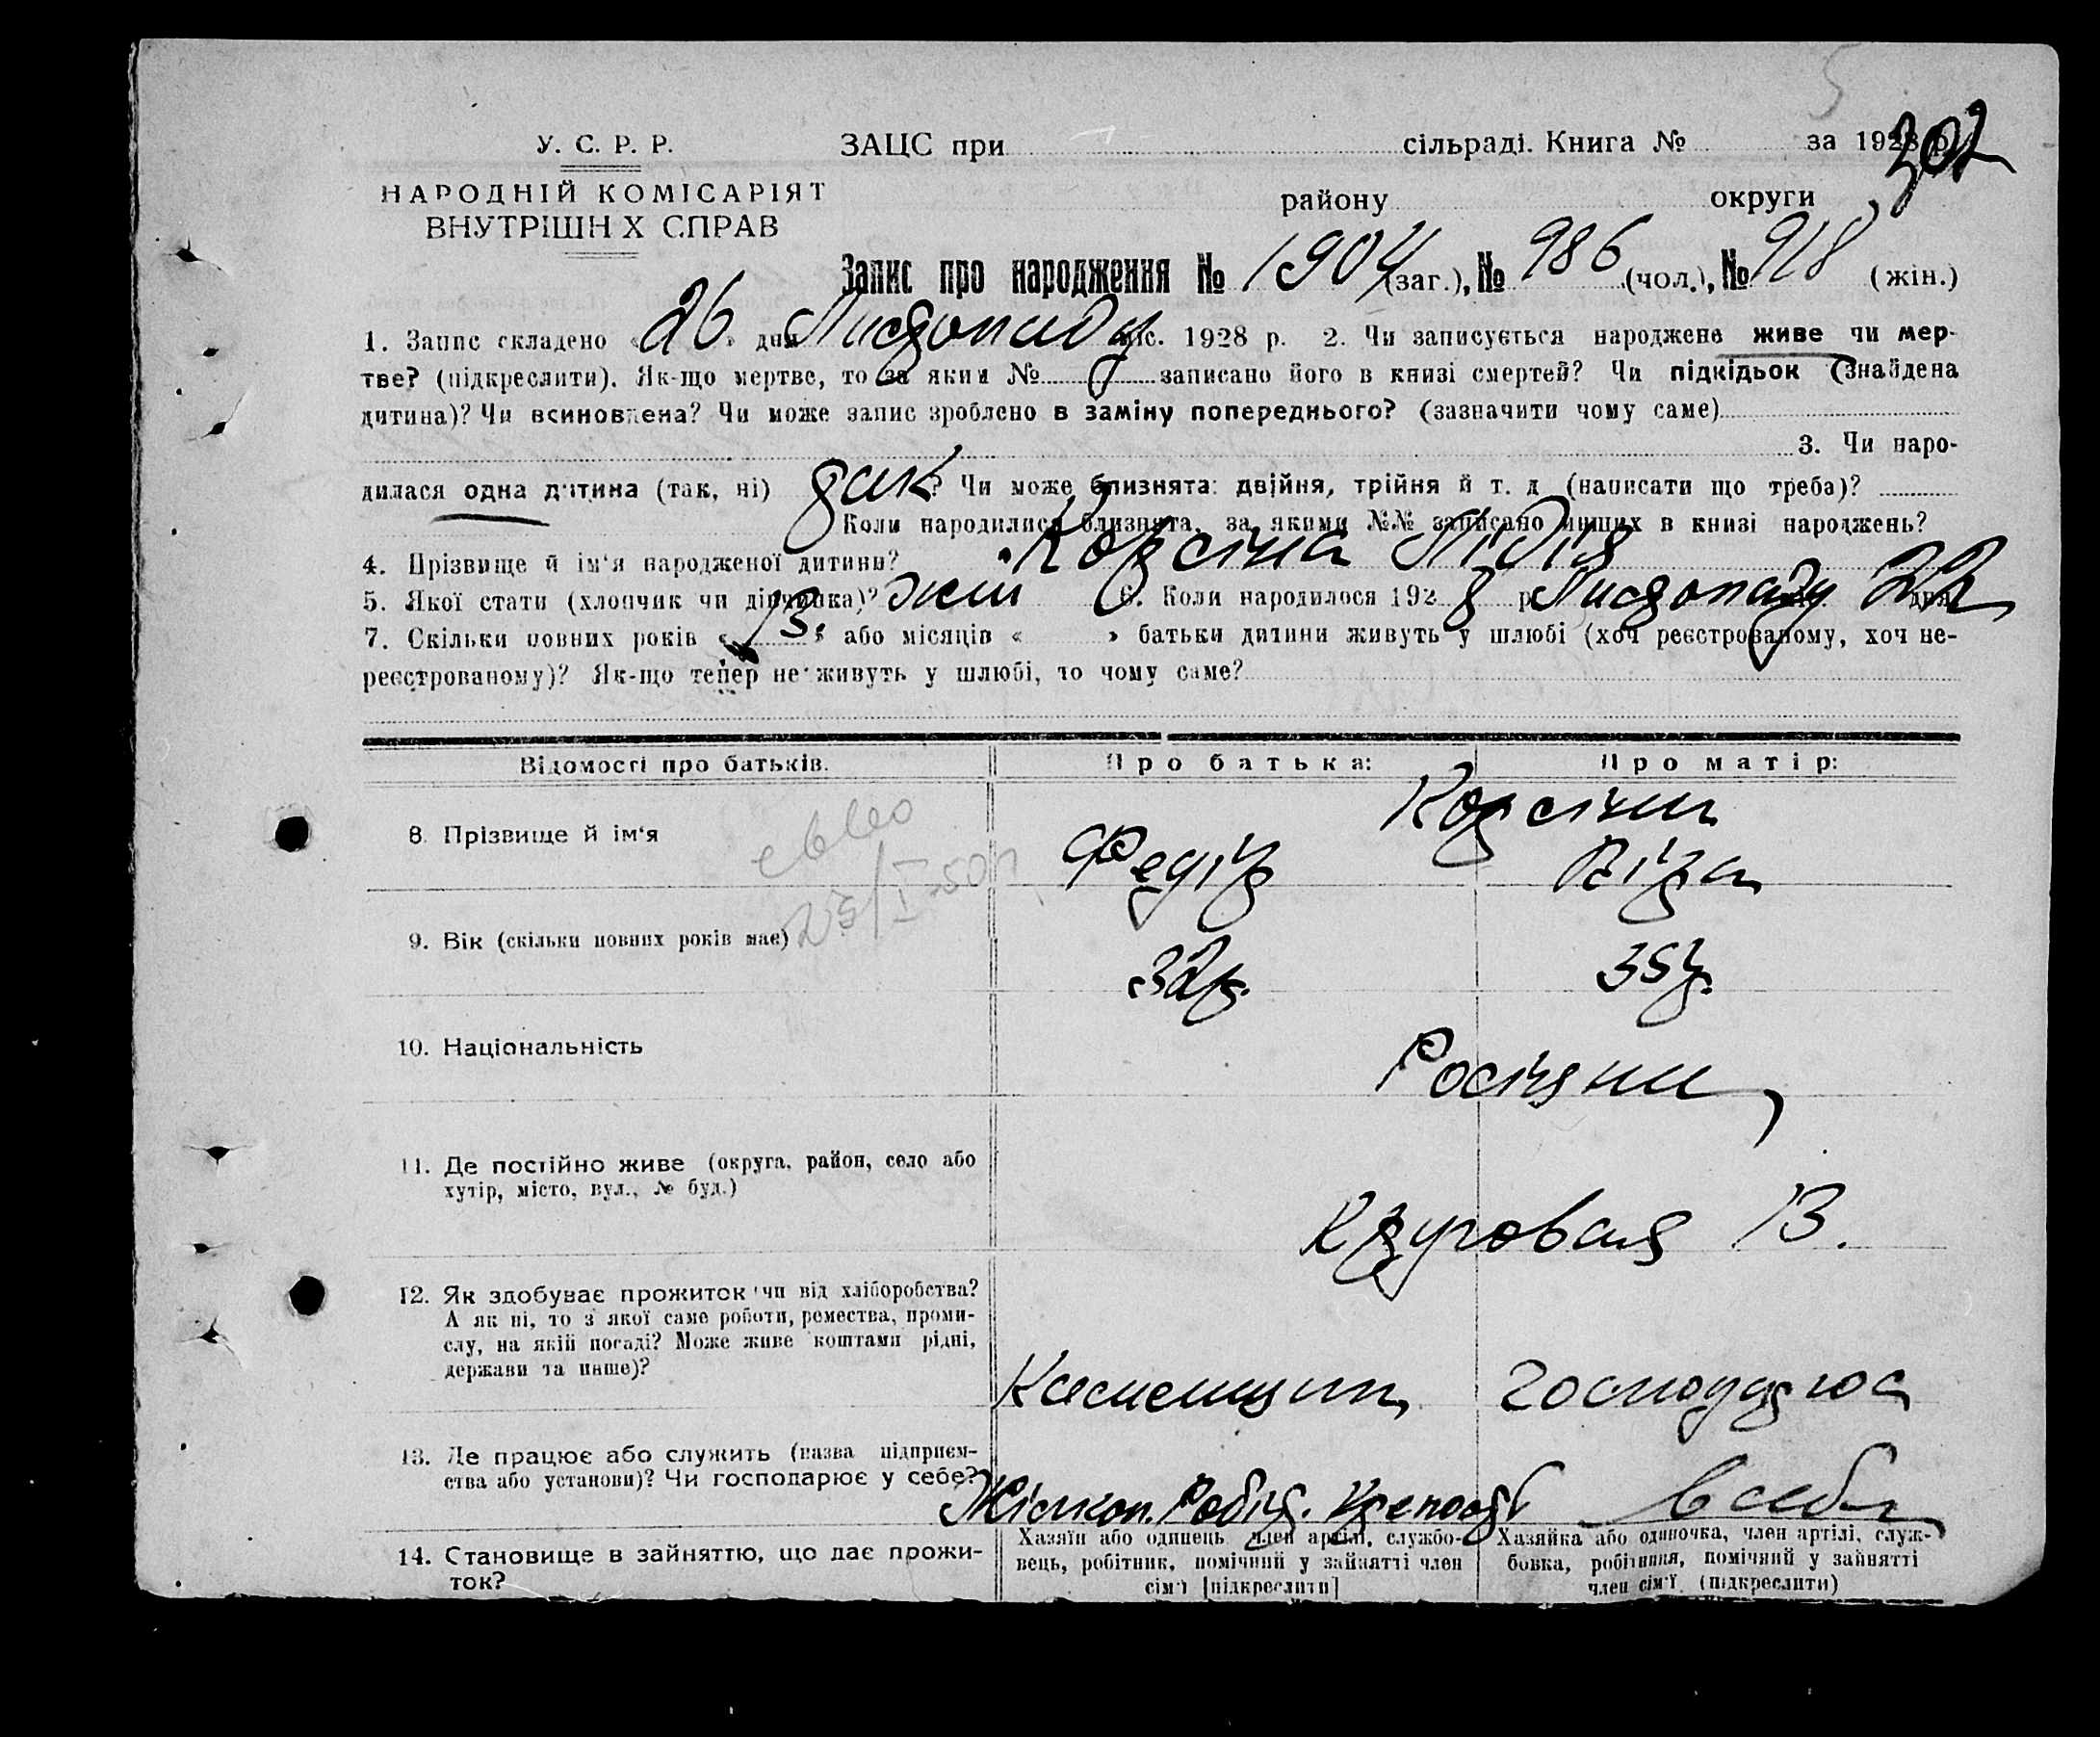 5
302
У. С. Р. Р. ЗАЦС при сільраді. Книга № за 1928 р.
НАРОДНІЙ КОМІСАРІЯТ району округи
ВНУТРІШН Х СПРАВ
Запис про народження № 1904 (заг.), № 986 (чол.), № 918 (жін.)
1. Запис складено « 26 » дня Листопаду міс. 1928 р. 2. Чи записується народжене живе чи мер-
тве? (підкреслити). Як-що мертве, то за яким № записано його в книзі смертей? Чи підкідьок (знайдена
дитина)? Чи всиновлена? Чи може запис зроблено в заміну попереднього? (зазначити чому саме)
3. Чи наро-
дилася одна дитина (так, ні) так? Чи може близнята: двійня, трійня й т. д (написати що треба)?
Коли народилися близнята, за якими №№ записано инших в книзі народжень?
4. Прізвище й ім'я народженої дитини? Корсіна Лідія
5. Якої стати (хлопчик чи дівчинка)? жін 6. Коли народилося 1928 р. Листопаду 22 дня
7. Скільки повних років « 13 » або місяців « » батьки дитини живуть у шлюбі (хоч реєстрованому, хоч не-
реєстрованому)? Як-що тепер не живуть у шлюбі, то чому саме?
Відомості про батьків. Про батька: Про матір:
Корсіни
8. Прізвище й ім'я Федір Віра
9. Вік (скільки повних років має) 32р. 35р.
10. Національність Росіяни
11. Де постійно живе (округа, район, село або
хутір, місто, вул., № буд.)
Круговая 13.
12. Як здобуває прожиток чи від хліборобства?
А як ні, то з якої саме роботи, ремества, проми-
слу, на якій посаді? Може живе коштами рідні,
держави та инше)?
Каменщик
13. Де працює або служить (назва підприєм-
ства або установи)? Чи господарює у себе?
в себе
14. Становище в зайняттю, що дає прожи-
ток?
Хазяїн або одинець, член артілі, службо-
вець, робітник, помічний у зайнятті член
сім'ї [підкреслити]
Хазяйка або одиночка, член артілі, служ-
бовка, робітниця, помічний у зайнятті
член сім'ї (підкреслити)